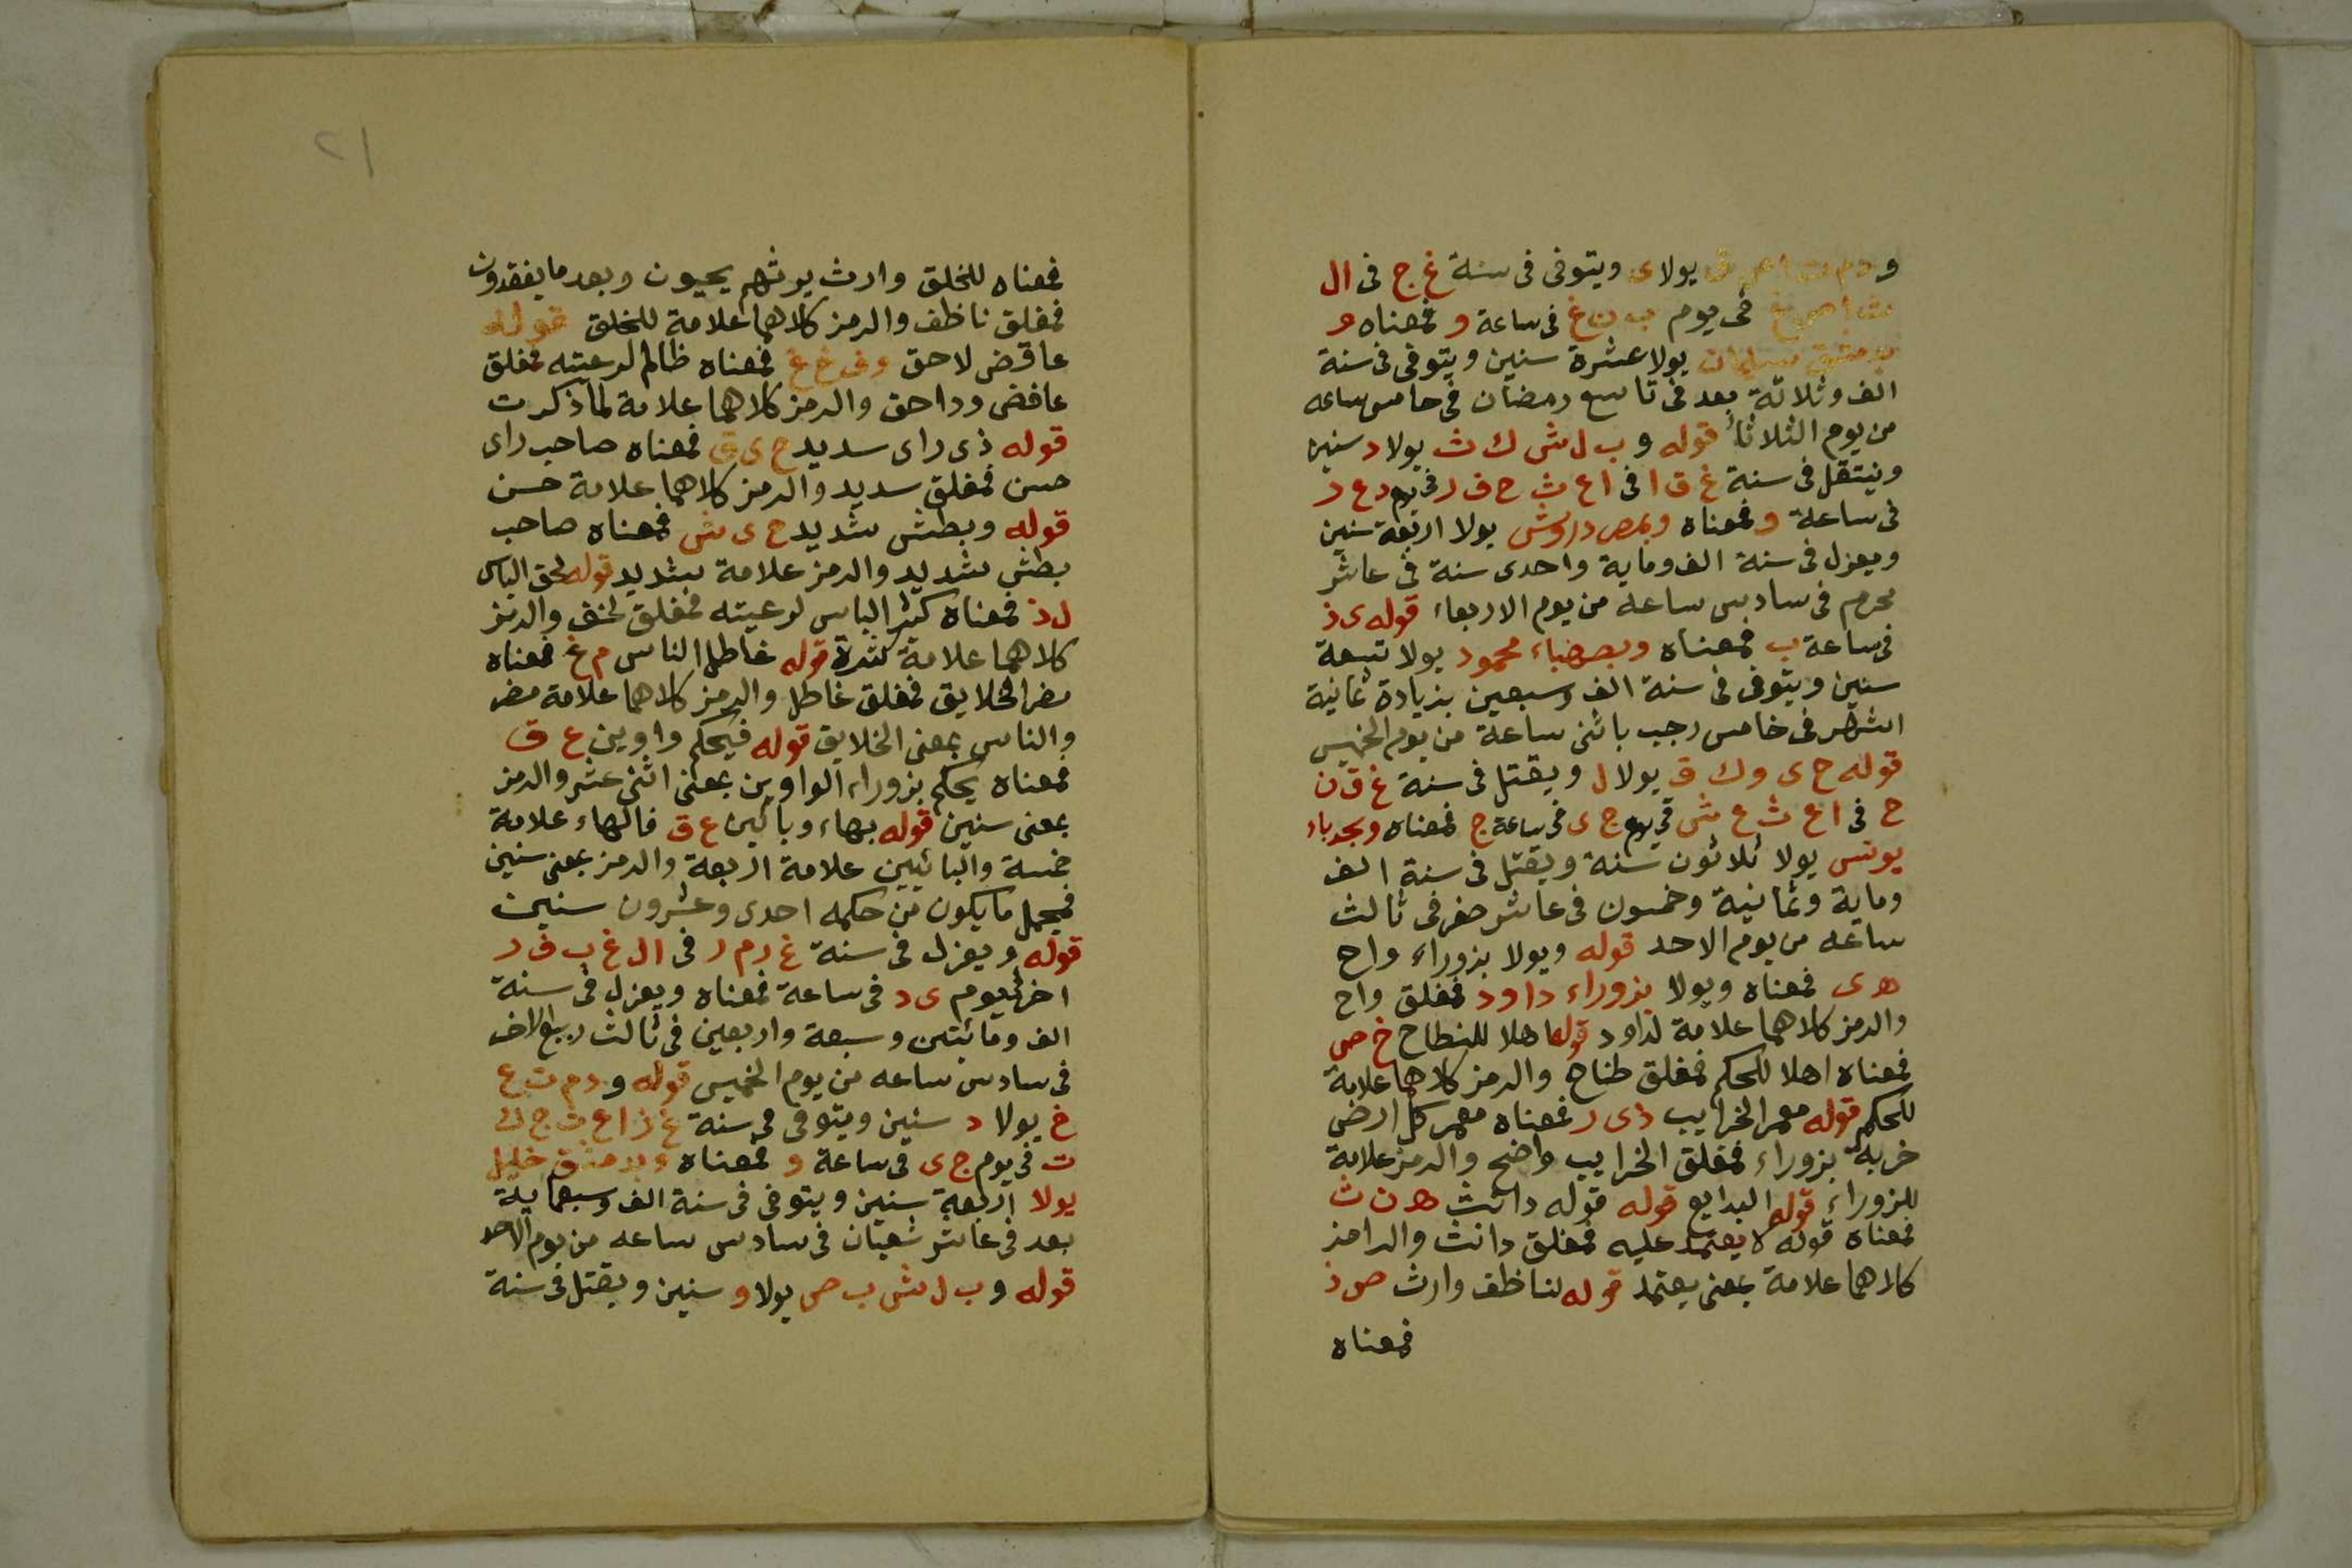 يولاى ويتوفى فى سنة غ ج فى ال
فى يوم ب ن غ فى ساعة و فمعناه و
يولا عشرة سنين ويتوفى فى سنة
الف وثلاثة بعد فى تاسع رمضان فى خامس ساعه
من يوم الثلاثا قوله و ب ل ش ك ث يولا د سنين
وينتقل فى سنة غ ق ا فى ا ع ث ح ف ر فى يوم د ع ر
فى ساعة و فمعناه وبمص درويش يولا اربعة سنين
ويعزل فى سنة الف وماية واحدى سنة فى عاشر
محرم فى سادس ساعة من يوم الاربعاء قوله ى ذ
فى ساعة ب فمعناه وبصهباء محمود يولا تسعة
سنين ويتوفى فى سنة الف وسبعين بزيادة ثمانية
اشهر فى خامس رجب باثنى ساعة من يوم الخميس
قوله ح ى و ك ق يولا ل ويقتل فى سنة غ ق ن
ح فى ا ع ث ع ش فى يوم ج ى فى ساعة ج فمعناه وبجدباء
يونس يولا ثلاثون سنة ويقتل فى سنة الف
وماية وثمانية وخمسون فى عاشر صفر فى ثالث
ساعه من يوم الاحد قوله ويولا بزوراء واح
ه ى فمعناه ويولا بزوراء داود فمغلق واح
والرمز كلاهما علامة لداود قوله اهلا للنطاح خ ص
فمعناه اهلا للحكم فمغلق طناح والرمز كلاهما علامة
للحكم قوله معمر الخرايب ذ ى ر فمعناه معمر كل ارض
خربة بزوراء فمغلق الخرايب واضح والرمز علامة
للزوراء قوله البدايع قوله قوله دانث ه ن ث
فمعناه قوله لا يعتمد عليه فمغلق دانث والرامز
كلاهما علامة بمعنى يعتمد قوله لناظف وارث ص ذ
فمعناه
٢١
فمعناه للخلق وارث يرثهم يحيون وبعد ما يفقدون
فمغلق ناظف والرمز كلاهما علامة للخلق قوله
عاقض لاحق و ف غ غ فمعناه ظالم لرعيته فمغلق
عاقض وداحق والرمز كلاهما علامة لما ذكرت
قوله ذى راى سديد ح ى ق فمعناه صاحب راى
حسن فمغلق سديد والرمز كلاهما علامة حسن
قوله وبطش شديد ح ى ش فمعناه صاحب
بطش شديد والرمز علامة شديد قوله لحق الباس
ل ذ فمعناه كثير الباس لرعيته فمغلق لحق والرمز
كلاهما علامة كثرة قوله غاطل الناس م غ فمعناه
مضر الخلايق فمغلق غاطل والرمز كلاهما علامة مضر
والناس بمعنى الخلايق قوله فيحكم واوين ع ق
فمعناه يحكم بزوراء الواوين بمعنى اثنى عشر والرمز
بمعنى سنين قوله بهاء وبائين ع ق فالهاء علامة
خمسة والبائيين علامة اربعة والرمز بمعنى سنين
فيجمل ما يكون من حكمه احدى وعشرون سنين
قوله ويعزل فى سنة غ ر م ر فى ال غ ب ف ر
اخر فى يوم ى د فى ساعة فمعناه ويعزل فى سنة
الف ومائتين وسبعة واربعين فى ثالث ربيع الاخر
فى سادس ساعه من يوم الخميس قوله و د م ت ع
خ يولا د سنين ويتوفى فى سنة غ ز ا ع ث ج ك
ت فى يوم ج ى فى ساعة و فمعناه وبدمشق خليل
يولا اربعة سنين ويتوفى فى سنة الف وسبعماية
بعد فى عاشر شعبان فى سادس ساعه من يوم الاحد
قوله و ب ل ش ب ص يولا و سنين ويقتل فى سنة